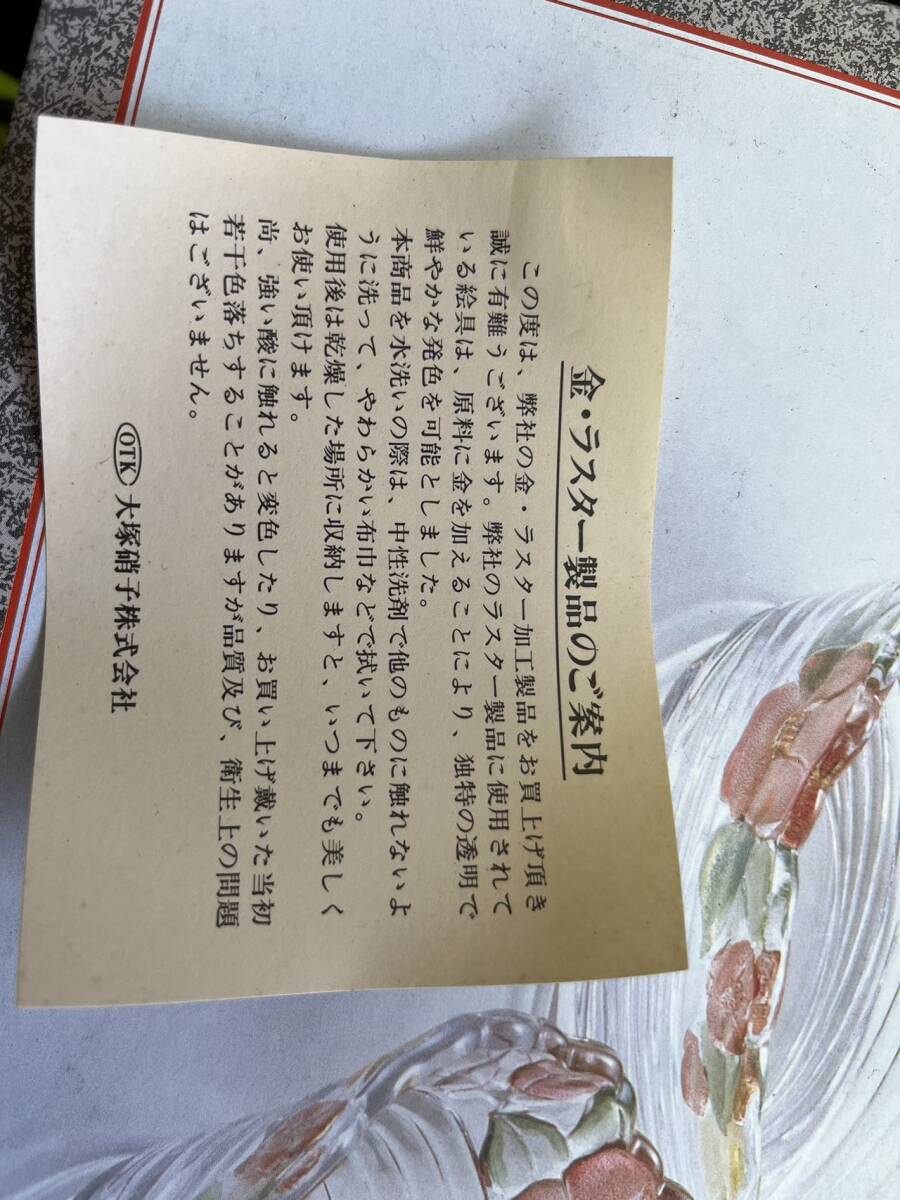 金・ラスター製品のご案内
この度は、弊社の金・ラスター加工製品をお買上げ頂き
誠に有難うございます。弊社のラスター製品に使用されて
いる絵具は、原料に金を加えることにより、独特の透明で
鮮やかな発色を可能としました。
本商品を水洗いの際は、中性洗剤で他のものに触れないよ
うに洗って、やわらかい布巾などで拭いて下さい。
使用後は乾燥した場所に収納しますと、いつまでも美しく
お使い頂けます。
尚、強い酸に触れると変色したり、お買い上げ戴いた当初
若干色落ちすることがありますが品質及び、衛生上の問題
はございません。
OTK 大塚硝子株式会社